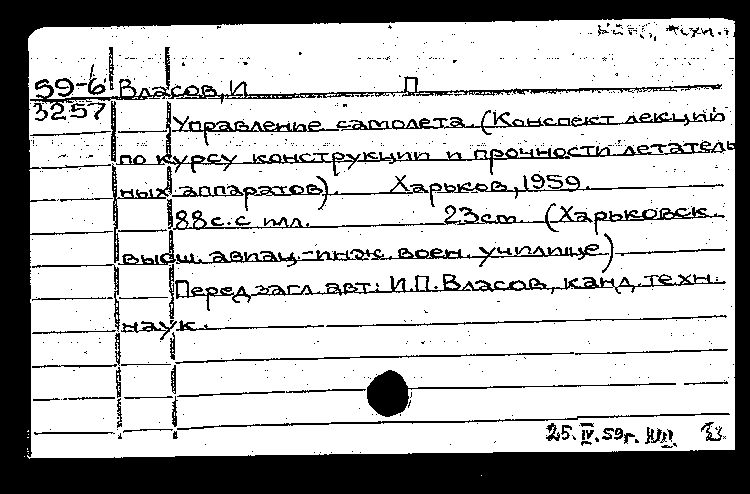 59-6 Власов, И. П
3257
Управление самолета. (Конспект лекций
по курсу конструкции и прочности летатель
ных аппаратов). Харьков, 1959.
88с. с илл. 23см. (Харьковск.
высш. авиац.-инж. воен. училище)
Перед загл. авт: И.П.Власов, канд. техн.
наук.
25.IV.59г.